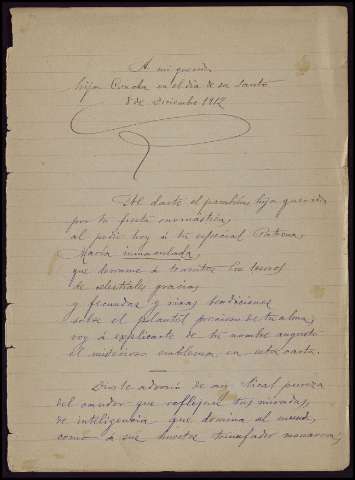 A mi querida
hija Concha en el dia de su santo
8 de Diciembre 1912
Al darte el parabien hija querida
por tu fiesta onomástica,
al pedir hoy á tu especial Patrona,
María inmaculada,
que derrame á torrentes los tesoros
de celestiales gracias,
y fecundas y ricas bendiciones
sobre el plantel precioso de tu alma,
voy á explicarte de tu nombre augusto
el misterioso emblema en esta carta.
Dios te adornó de angelical pureza
del candor que reflejan tus miradas,
de inteligencia que domina al mundo,
como á sus huestes triunfador monarca,